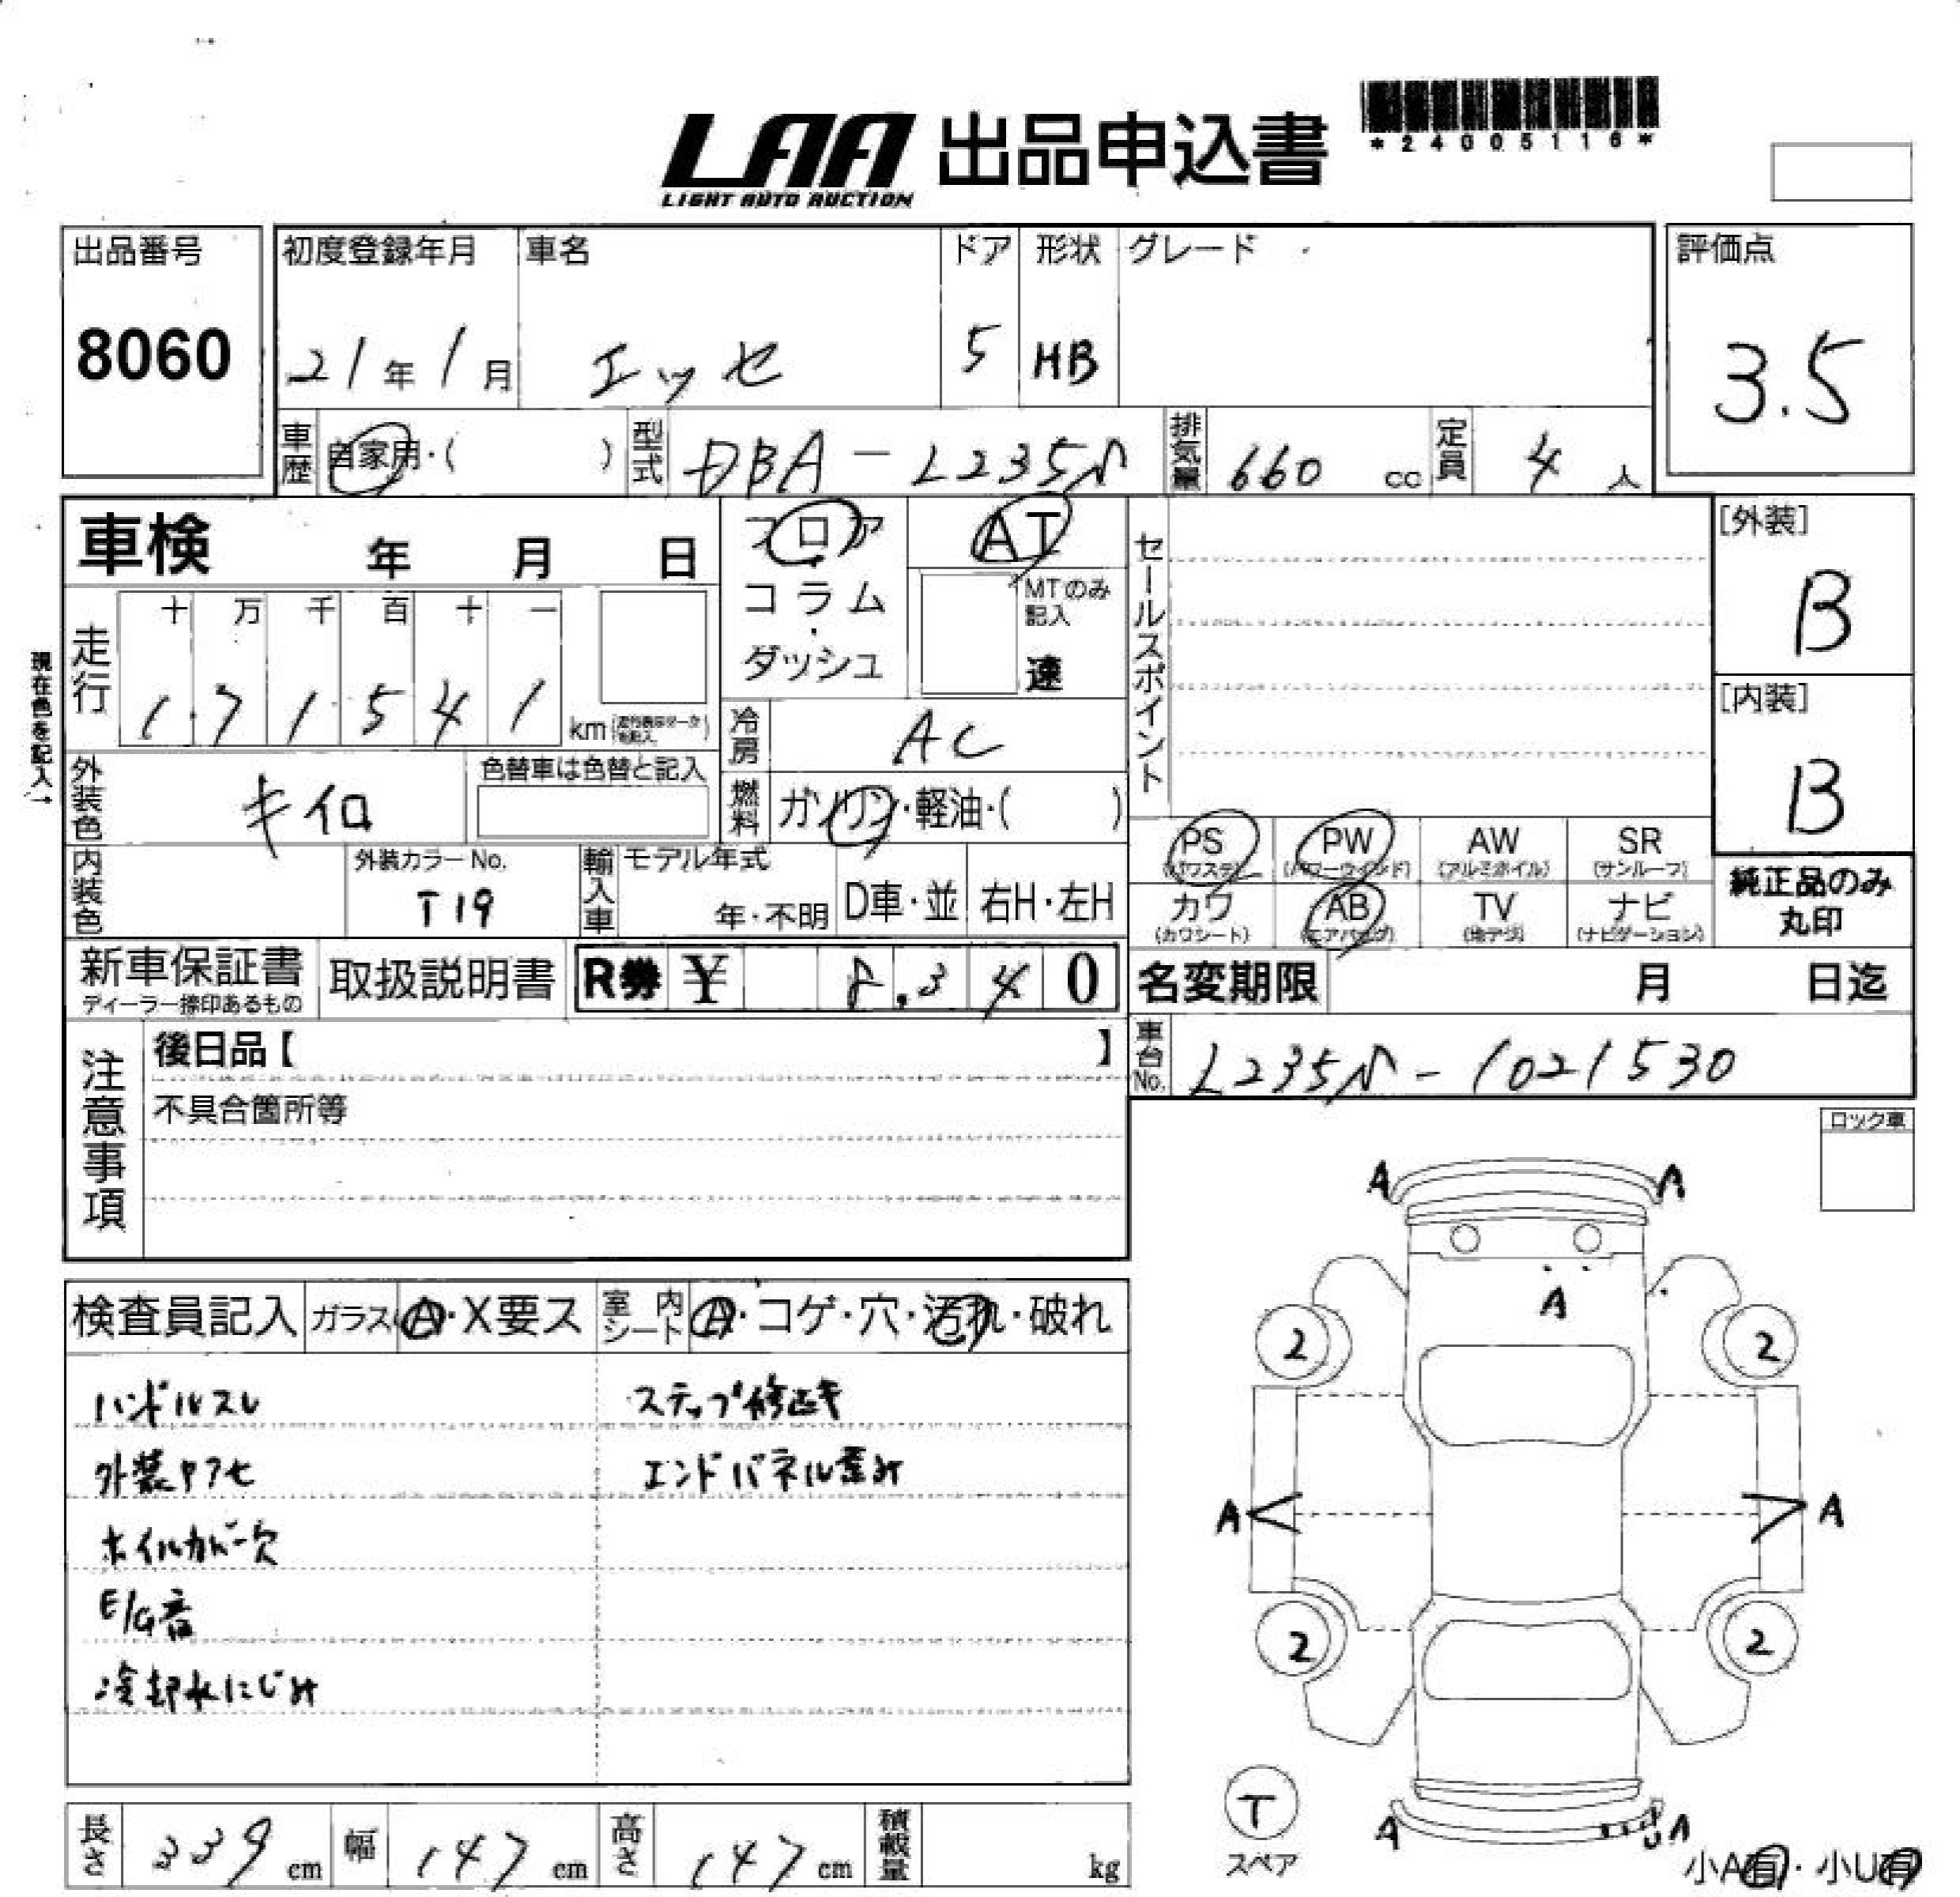 LAA 出品申込書
LIGHT AUTO AUCTION
*24005116*
出品番号
8060
初度登録年月
21年1月
車名
エッセ
ドア
5
形状
HB
グレード
評価点
3.5
車歴
自家用・( )
型式
DBA-L235S
排気量
660 cc
定員
4 人
車検 年 月 日
フロア・コラム・ダッシュ
AT
MTのみ記入
速
セールスポイント
[外装]
B
[内装]
B
現在色を記入→
走行
十 万 千 百 十 一
1 7 1 5 4 1
km
冷房
AC
外装色
キイロ
色替車は色替と記入
燃料
ガソリン・軽油・( )
PS
(パワステ)
PW
(パワーウインド)
AW
(アルミホイル)
SR
(サンルーフ)
カワ
(カワシート)
AB
(エアバッグ)
TV
(地デジ)
ナビ
(ナビゲーション)
純正品のみ
丸印
内装色
外装カラーNo.
T19
輸入車
モデル年式
年・不明
D車・並
右H・左H
新車保証書
ディーラー捺印あるもの
取扱説明書
R券 ¥ 8.340
名変期限 月 日迄
注意事項
後日品【 】
不具合箇所等
車台No.
L235S-1021530
ロック車
検査員記入
ガラス
A・X要ス
室内シート
A・コゲ・穴・汚れ・破れ
ハンドルスレ
ステップ修正キ
外装ヤケセ
エンドパネル歪み
ホイルカバー欠
E/G音
冷却水にじみ
A A
A
2 2
A A
2 2
A A
T
スペア
小A有・小U有
長さ
339 cm
幅
147 cm
高さ
147 cm
積載量
kg